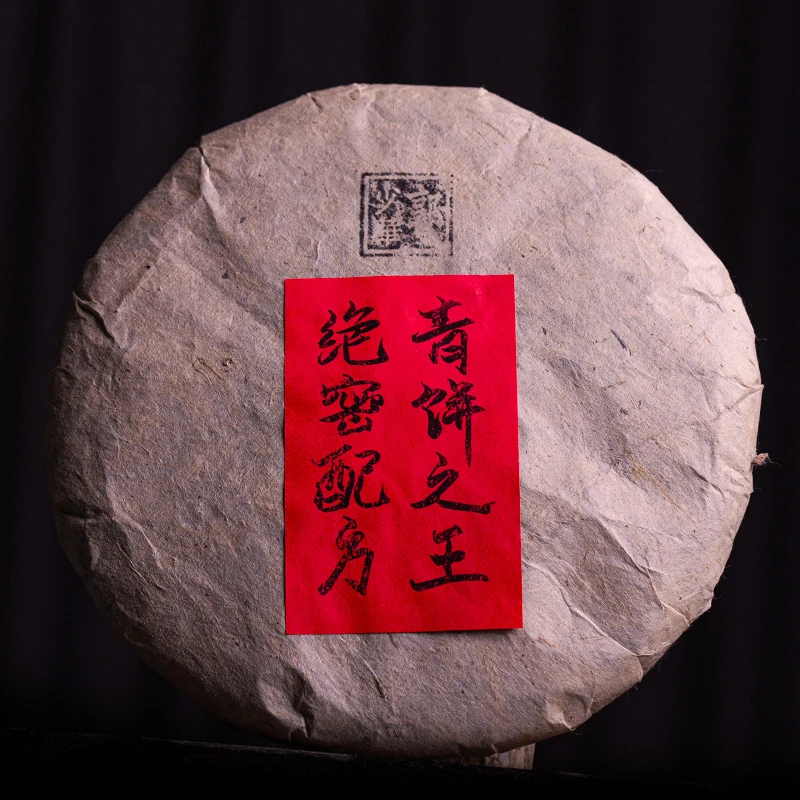 青饼之王
绝密配方